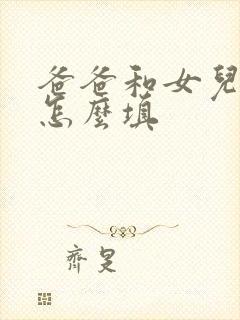 爸爸和女兒
怎麼填
齊旻